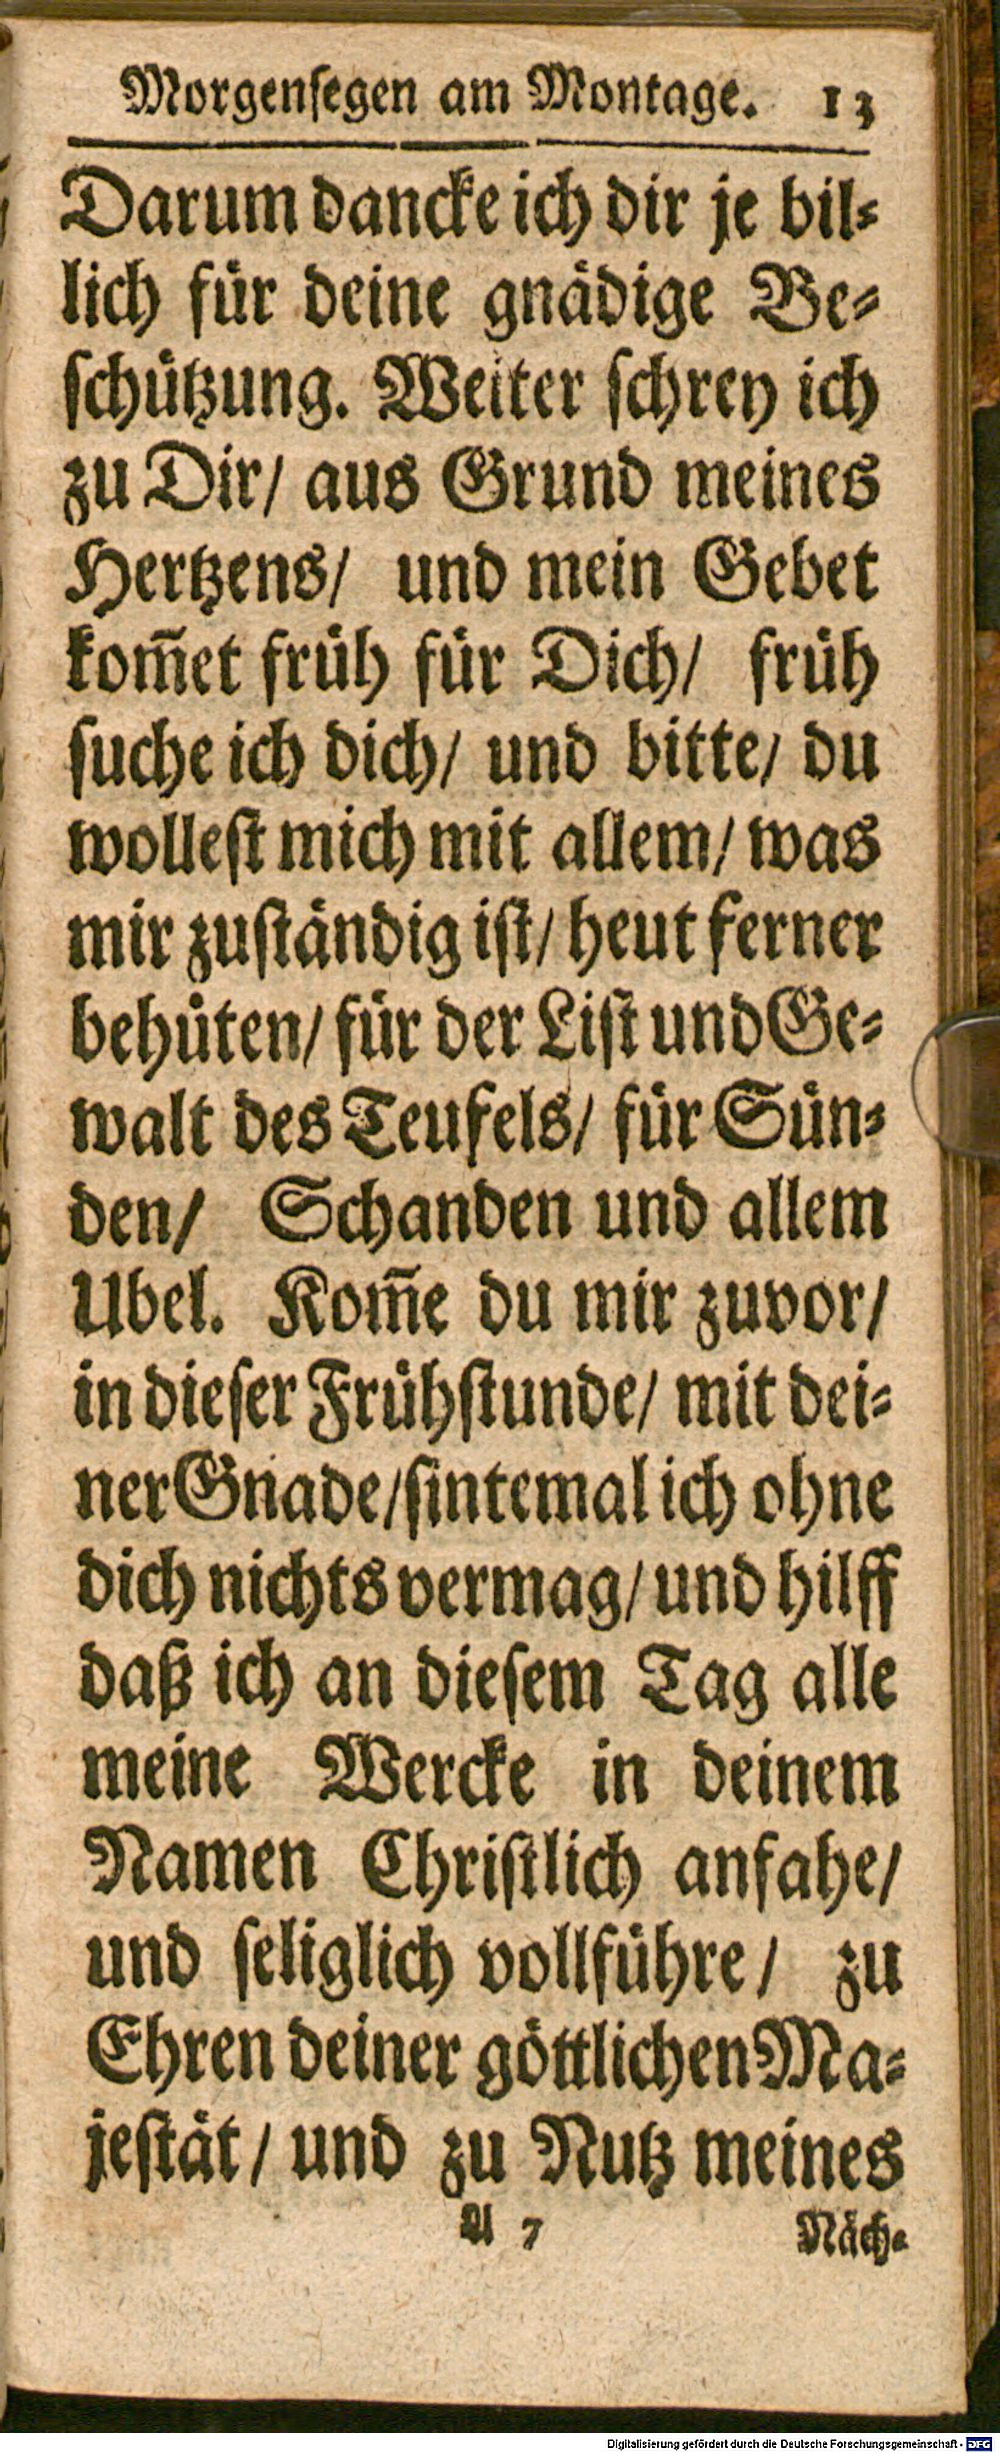 Morgenſegen am Montage. 13
Darum dancke ich dir je bil⸗
lich fuͤr deine gnaͤdige Be⸗
ſchuͤtzung. Weiter ſchrey ich
zu Dir/ aus Grund meines
Hertzens/ und mein Gebet
kom̃et fruͤh fuͤr Dich/ fruͤh
ſuche ich dich/ und bitte/ du
wolleſt mich mit allem/ was
mir zuſtaͤndig iſt/ heut ferner
behuͤten/ fuͤr der Liſt und Ge⸗
walt des Teufels/ fuͤr Suͤn⸗
den/ Schanden und allem
Ubel. Kom̃e du mir zuvor/
in dieſer Fruͤhſtunde/ mit dei⸗
ner Gnade/ ſintemal ich ohne
dich nichts vermag/ und hilff
daß ich an dieſem Tag alle
meine Wercke in deinem
Namen Chriſtlich anfahe/
und ſeliglich vollfuͤhre/ zu
Ehren deiner goͤttlichen Ma⸗
jeſtaͤt/ und zu Nutz meines
A 7 Naͤch⸗
Digitalisierung gefördert durch die Deutsche Forschungsgemeinschaft - DFG